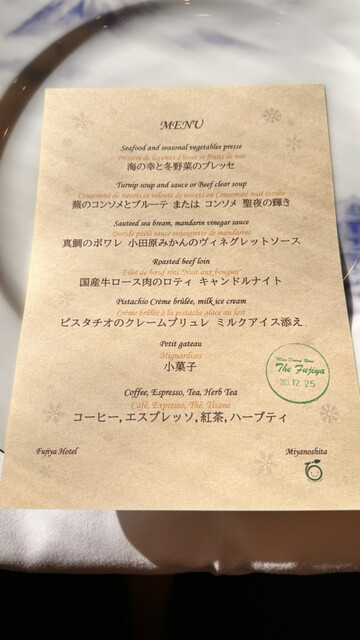 MENU
Seafood and seasonal vegetables presse
Pressée de légumes d'hiver et fruits de mer
海の幸と冬野菜のプレッセ
Turnip soup and sauce or Beef clear soup
Consommé de navets et velouté de navets ou Consommé nuit étoilée
蕪のコンソメとブルーテ または コンソメ 聖夜の輝き
Sauteed sea bream, mandarin vinegar sauce
Dorade poêlé sauce vinaigrette de mandarine
真鯛のポワレ 小田原みかんのヴィネグレットソース
Roasted beef loin
Filet de bœuf rôti "Nuit aux bougies"
国産牛ロース肉のロティ キャンドルナイト
Pistachio Crème brûlée, milk ice cream
Crème brûlée à la pistache glace au lait
ピスタチオのクレームブリュレ ミルクアイス添え
Petit gateau
Mignardises
小菓子
Coffee, Espresso, Tea, Herb Tea
Café, Expresso, Thé, Tisane
コーヒー,エスプレッソ,紅茶,ハーブティ
Main Dining Room
The Fujiya
12.25
Fujiya Hotel
Miyanoshita